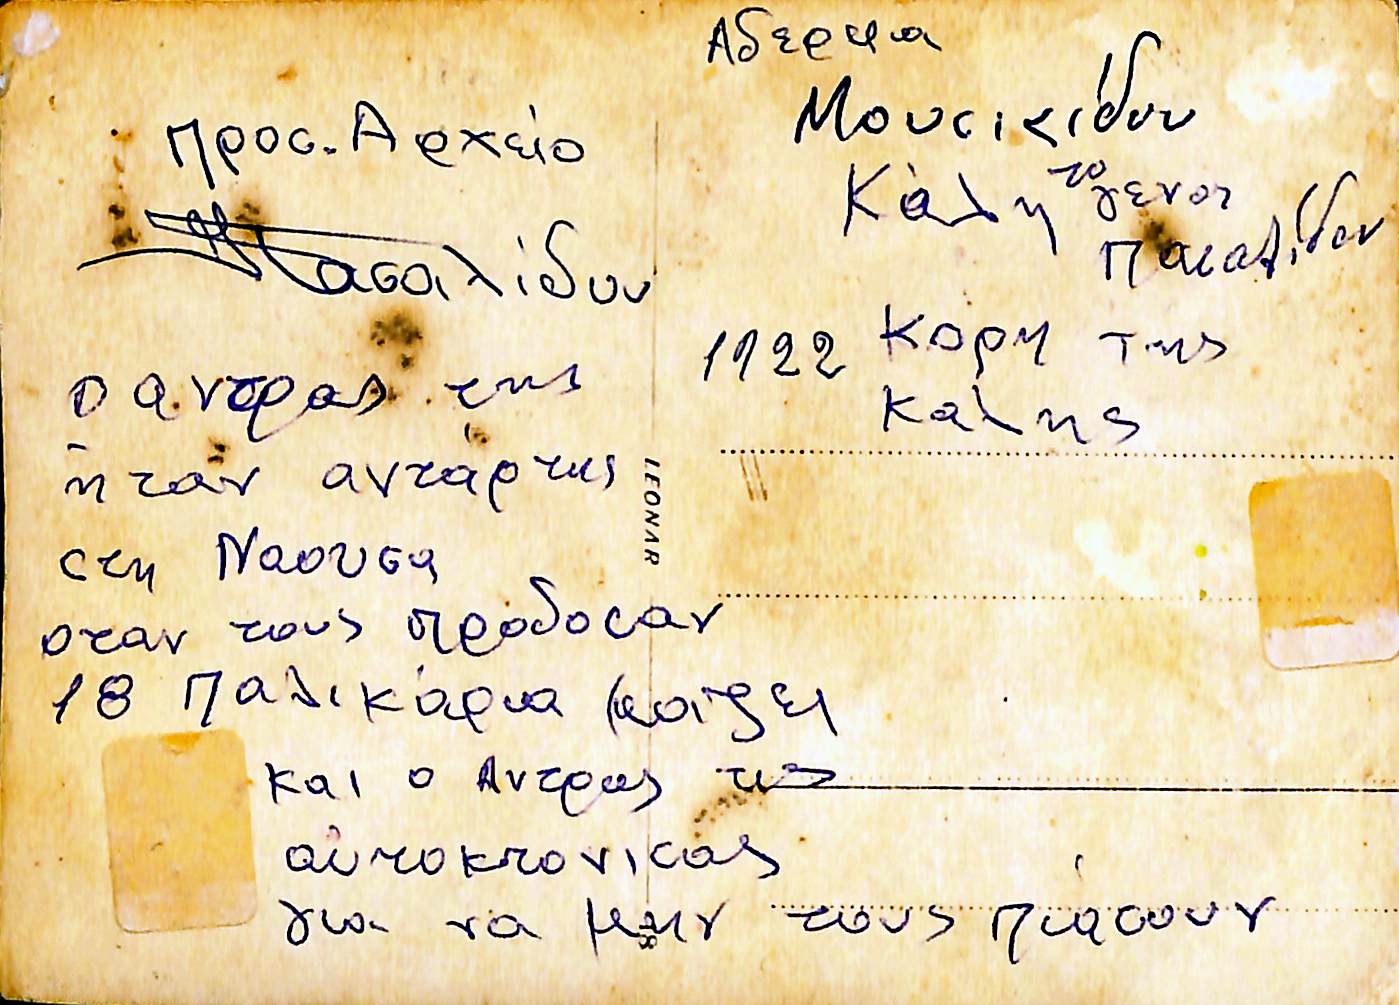 Αδερφια
Μουσικίδου
Κάλη το γενος
Πασαλίδου
1922 κορη της
Καλης
προς. Αρχείο
Πασαλίδου
ο αντρας της
ήταν αντάρτης
στη Ναουσα
οταν τους πρόδοσαν
18 Παλικάρια μαζι
και ο Αντρας της
αυτοκτονισας
για να μην τους πιάσουν
LEONAR